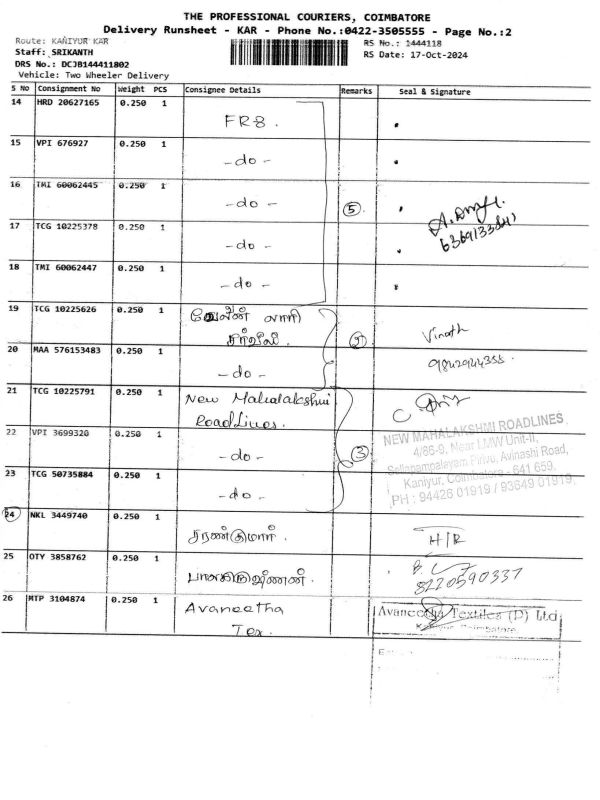 THE PROFESSIONAL COURIERS, COIMBATORE
Delivery Runsheet - KAR - Phone No.:0422-3505555 - Page No.:2
Route: KANIYUR KAR
RS No.: 1444118
Staff: SRIKANTH
RS Date: 17-Oct-2024
DRS No.: DCJB144411802
Vehicle: Two Wheeler Delivery
S No Consignment No Weight PCS Consignee Details Remarks Seal & Signature
14 HRD 20627165 0.250 1 FR8
15 VPI 676927 0.250 1 -do-
16 TMI 60062445 0.250 1 -do- 5
17 TCG 10225378 0.250 1 -do-
18 TMI 60062447 0.250 1 -do-
19 TCG 10225626 0.250 1 லாரி
சர்வீஸ். Vinoth
20 MAA 576153483 0.250 1 -do- 2 9842944355
21 TCG 10225791 0.250 1 New Mahalakshmi
RoadLines.
22 VPI 3699320 0.250 1 -do- 3
23 TCG 50735884 0.250 1 -do-
NEW MAHALAKSHMI ROADLINES
4/86-9, Near LMW Unit-II,
Avinashi Road,
Kaniyur, Coimbatore - 641 659.
PH : 94426 01919 / 93649 01919
24 NKL 3449740 0.250 1 சரண்குமார். H/R
25 OTY 3858762 0.250 1 பாலகிருஷ்ணன். 8220590337
26 MTP 3104874 0.250 1 Avaneetha
Tex.
Avaneetha Textiles (P) Ltd
Kaniyur, Coimbatore